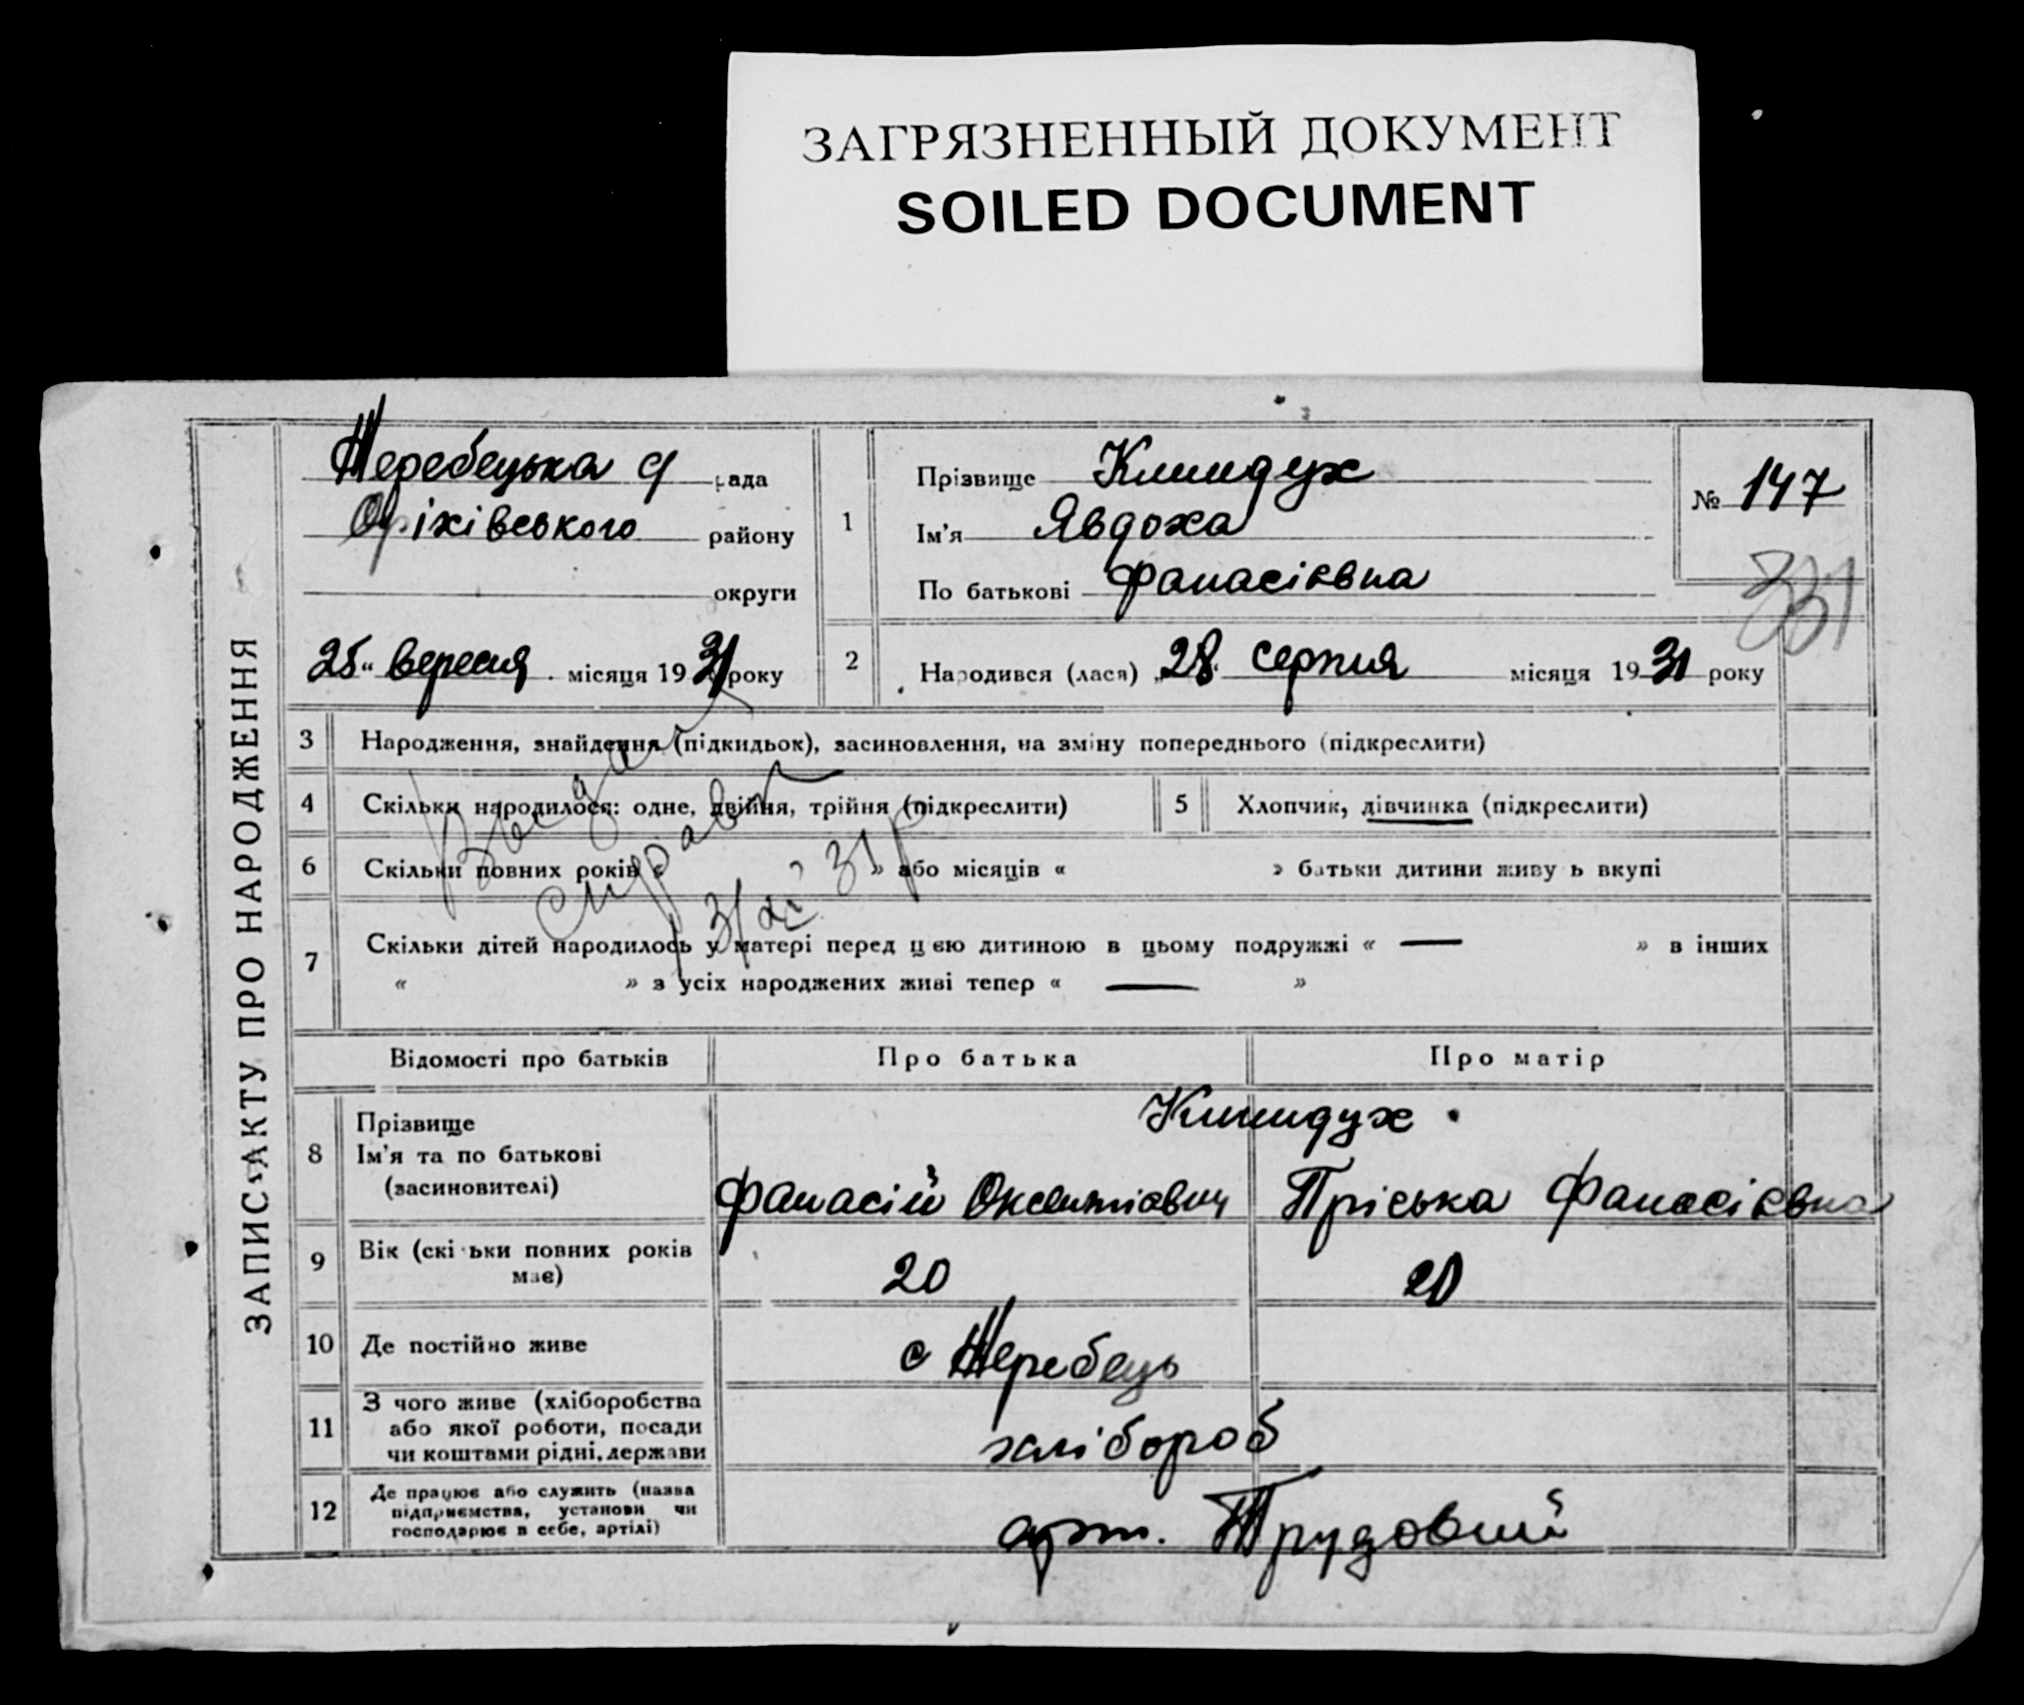 ЗАГРЯЗНЕННЫЙ ДОКУМЕНТ
SOILED DOCUMENT
ЗАПИС АКТУ ПРО НАРОДЖЕННЯ
Жеребецька с/ рада
Оріхівського району
округи
25 вересня місяця 1931 року
1
Прізвище Климдух
Ім'я Явдоха
По батькові Фанасіївна
№ 147
331
2 Народився (лася) „28“ серпня місяця 1931 року
3 Народження, знайдення (підкидьок), засиновлення, на зміну попереднього (підкреслити)
4 Скільки народилося: одне, двійня, трійня (підкреслити)
5 Хлопчик, дівчинка (підкреслити)
6 Скільки повних років « » або місяців « » батьки дитини живуть вкупі
справка
31 р
7 Скільки дітей народилось у матері перед цією дитиною в цьому подружжі « — » в інших
« » з усіх народжених живі тепер « — »
Відомості про батьків Про батька Про матір
8 Прізвище
Ім'я та по батькові
(засиновителі)
Климдух
Фанасій Оксентієвич Пріська Фанасієвна
9 Вік (скільки повних років
має)
20 20
10 Де постійно живе с Жеребець
11 З чого живе (хліборобства
або якої роботи, посади
чи коштами рідні, держави
хлібороб
12 Де працює або служить (назва
підприємства, установи чи
господарює в себе, артілі)
арт. Трудовий